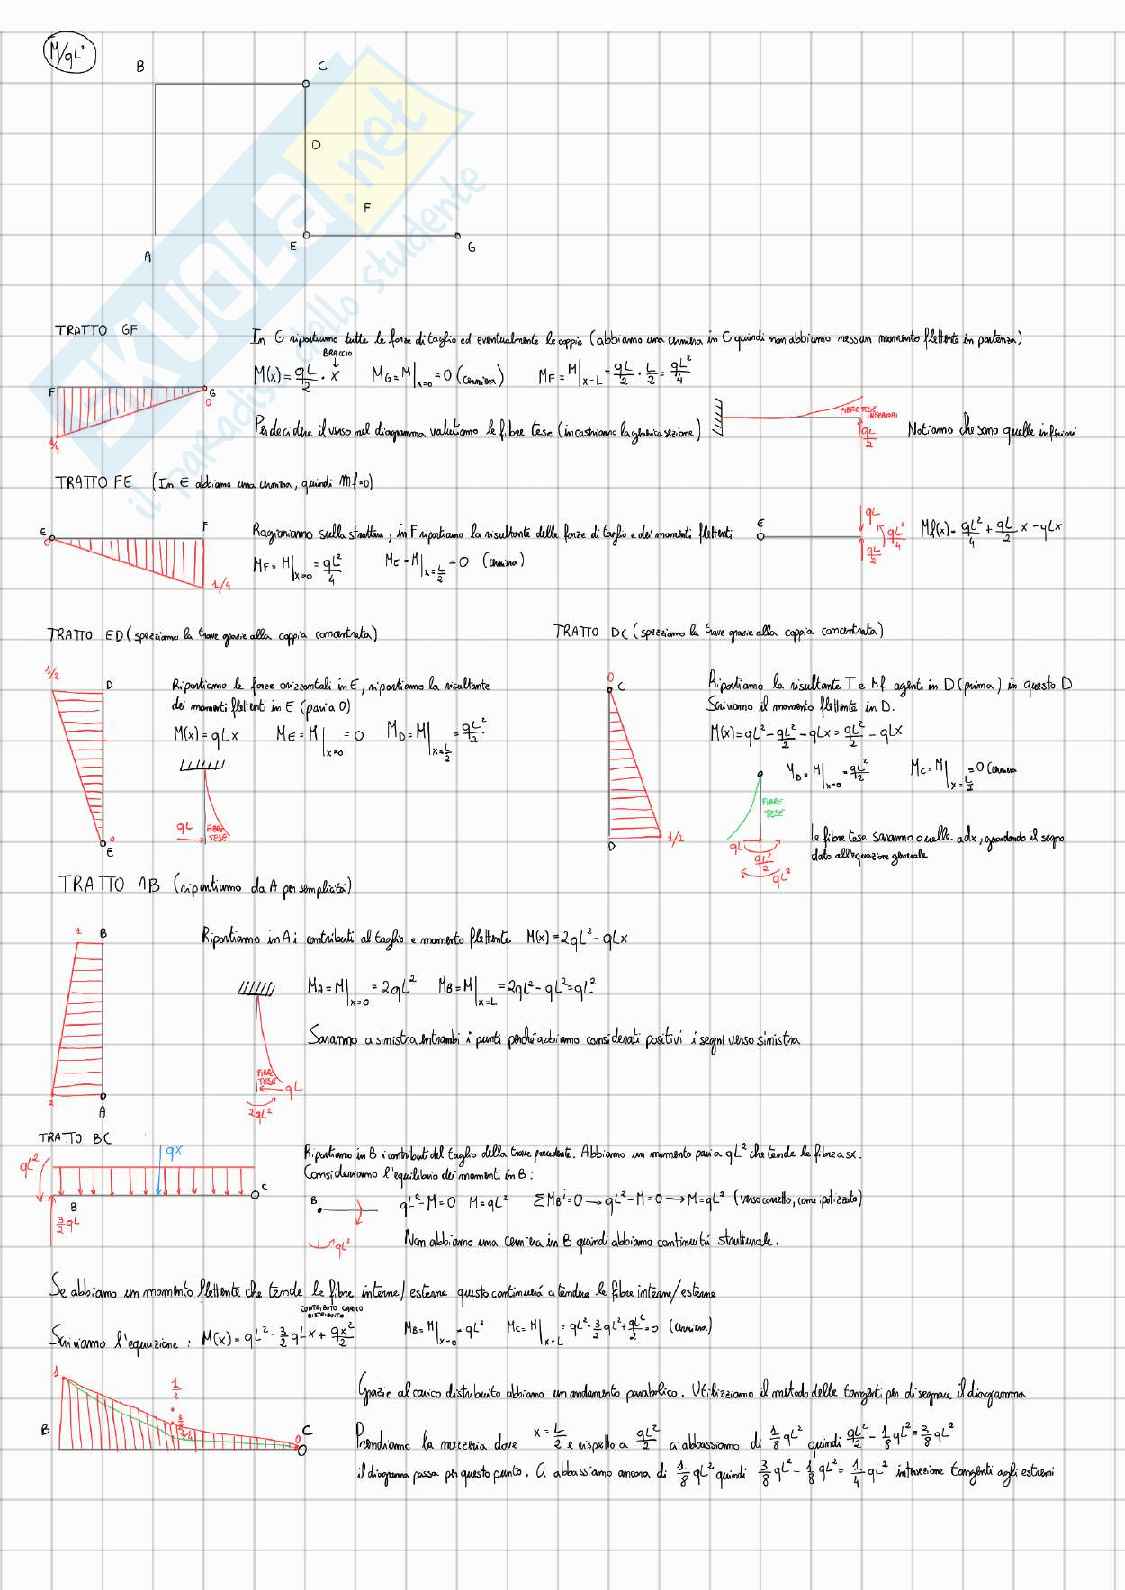 M/qL²
B
C
D
F
E
G
A
SKUOLA.net
il paradiso dello studente
TRATTO GF
In G riportiamo tutte le forze di taglio ed eventualmente le coppie (abbiamo una cerniera in G quindi non abbiamo nessun momento flettente in partenza)
BRACCIO
M(x) = qL/2 · x   MG = M|x=0 = 0 (cerniera)   MF = M|x=L = qL/2 · L/2 = qL²/4
F G 0 1/4
Per decidere il verso nel diagramma valutiamo le fibre tese (incastriamo la generica sezione)
qL/2
Notiamo che sono quelle inferiori
TRATTO FE (In E abbiamo una cerniera, quindi Mf=0)
E 0 F 1/4
Ragioniamo sulla struttura, in F riportiamo la risultante delle forze di taglio e dei momenti flettenti
E qL qL²/4 qL/2
Mf(x) = qL²/4 + qL/2 x - qLx
MF = M|x=0 = qL²/4   ME = M|x=L/2 = 0 (cerniera)
TRATTO ED (spezziamo la trave grazie alla coppia concentrata)
1/2 D 0 E
Riportiamo le forze orizzontali in E, riportiamo la risultante
dei momenti flettenti in E (pari a 0)
M(x) = qLx   ME = M|x=0 = 0   MD = M|x=L/2 = qL²/2
qL FIBRE TESE
TRATTO DC (spezziamo la trave grazie alla coppia concentrata)
0 C D 1/2
Riportiamo la risultante T e Mf agenti in D (prima) in questo D
Scriviamo il momento flettente in D.
M(x) = qL² - qL²/2 - qLx = qL²/2 - qLx
MD = M|x=0 = qL²/2   MC = M|x=L/2 = 0 (cerniera)
FIBRE TESE
qL qL²/2 qL²
le fibre tese saranno quelle a dx, guardando il segno
dato all'equazione generale
TRATTO AB (ripartiamo da A per semplicità)
1 B 2 A
Riportiamo in A i contributi al taglio e momento flettente M(x) = 2qL² - qLx
MA = M|x=0 = 2qL²   MB = M|x=L = 2qL² - qL² = qL²
Saranno a sinistra entrambi i punti perché abbiamo considerati positivi i segni verso sinistra
FIBRE TESE qL
2qL²
TRATTO BC
qL² qx B C 3/2 qL
Riportiamo in B i contributi del taglio della trave precedente. Abbiamo un momento pari a qL² che tende le fibre a sx.
Consideriamo l'equilibrio dei momenti in B:
B qL²
qL² - M = 0   M = qL²   ΣMB = 0 → qL² - M = 0 → M = qL² (verso corretto, come ipotizzato)
Non abbiamo una cerniera in B quindi abbiamo continuità strutturale.
Se abbiamo un momento flettente che tende le fibre interne/esterne questo continuerà a tendere le fibre interne/esterne
CONTRIBUTO CARICO DISTRIBUITO
Scriviamo l'equazione: M(x) = qL² - 3/2 qLx + qx²/2   MB = M|x=0 = qL²   MC = M|x=L = qL² - 3/2 qL² + qL²/2 = 0 (cerniera)
1 B 1/2 3/8 1/4 0 C
Grazie al carico distribuito abbiamo un andamento parabolico. Utilizziamo il metodo delle tangenti per disegnare il diagramma
Prendiamo la mezzeria dove x = L/2 e rispetto a qL²/2 ci abbassiamo di 1/8 qL² quindi qL²/2 - 1/8 qL² = 3/8 qL²
il diagramma passa per questo punto. Ci abbassiamo ancora di 1/8 qL² quindi 3/8 qL² - 1/8 qL² = 1/4 qL² intersezione tangenti agli estremi